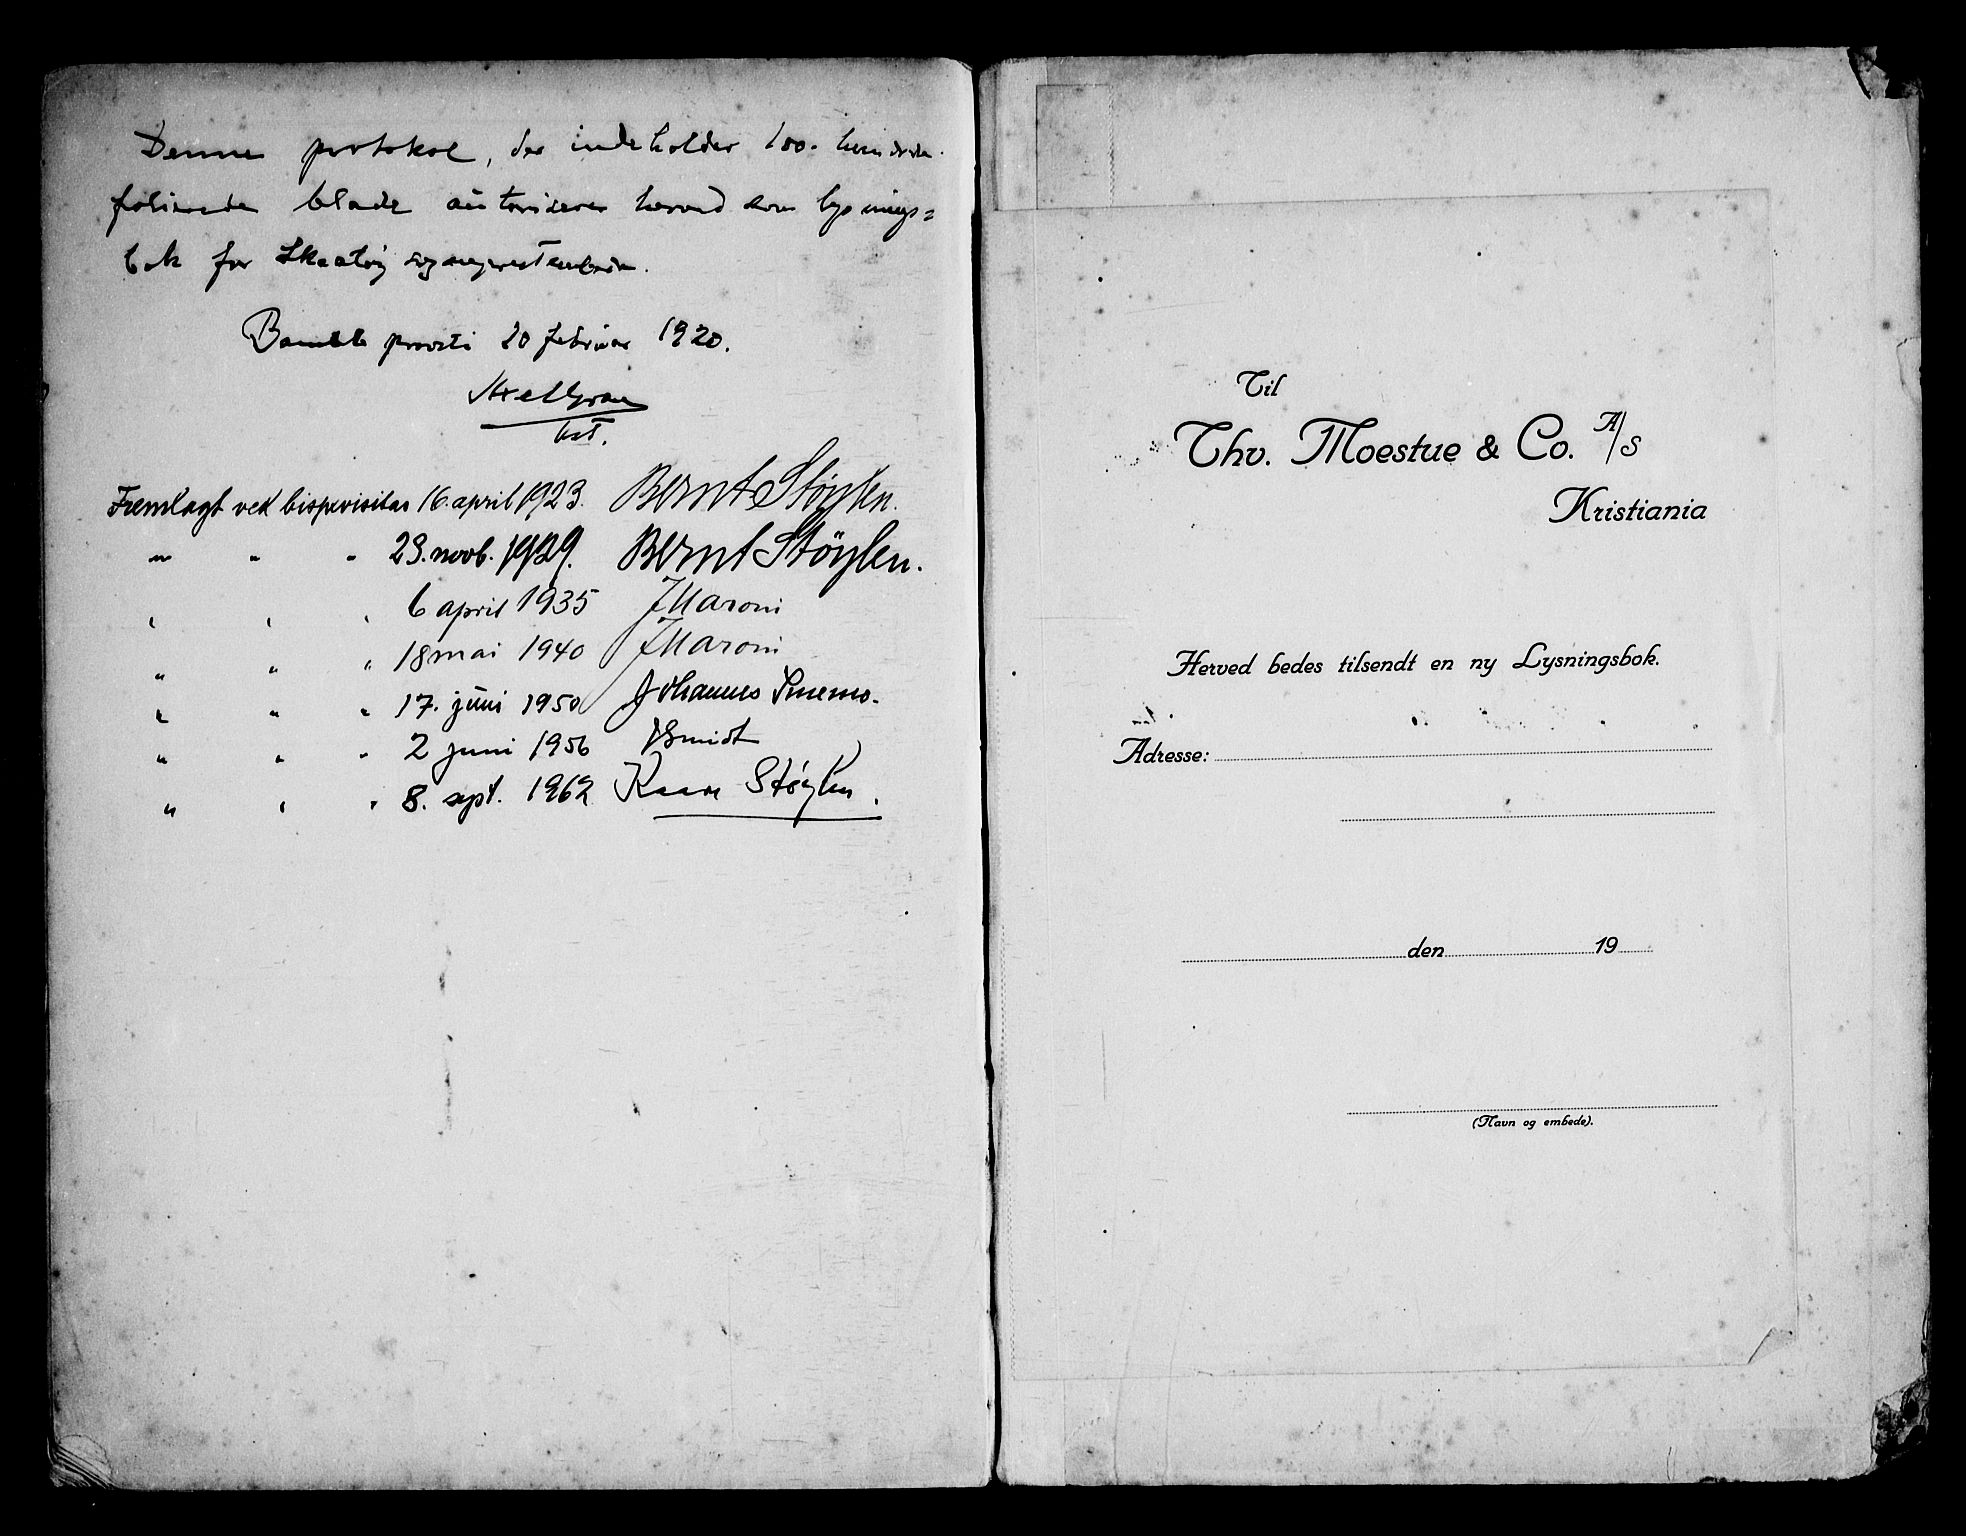 Denne protokol, der indeholder 100 - hundrede
folierede blade autoriseres herved som lysnings=
bok for Skaatøy sogneprestembede.
Bamble provsti 20 februar 1920.
kst.
Fremlagt ved bispevisitas 16. april 1923. Bernt Støylen.
" " " 23. novb. 1929. Bernt Støylen.
" " " 6 april 1935 J Maroni
" " " 18 mai 1940 J Maroni
" " " 17. juni 1950 Johannes Smemo.
" " " 2 juni 1956 J Smidt
" " " 8. sept. 1962 Kaare Støylen.
Til
Thv. Moestue & Co. A/S
Kristiania
Herved bedes tilsendt en ny Lysningsbok.
Adresse:
den 19
(Navn og embede).